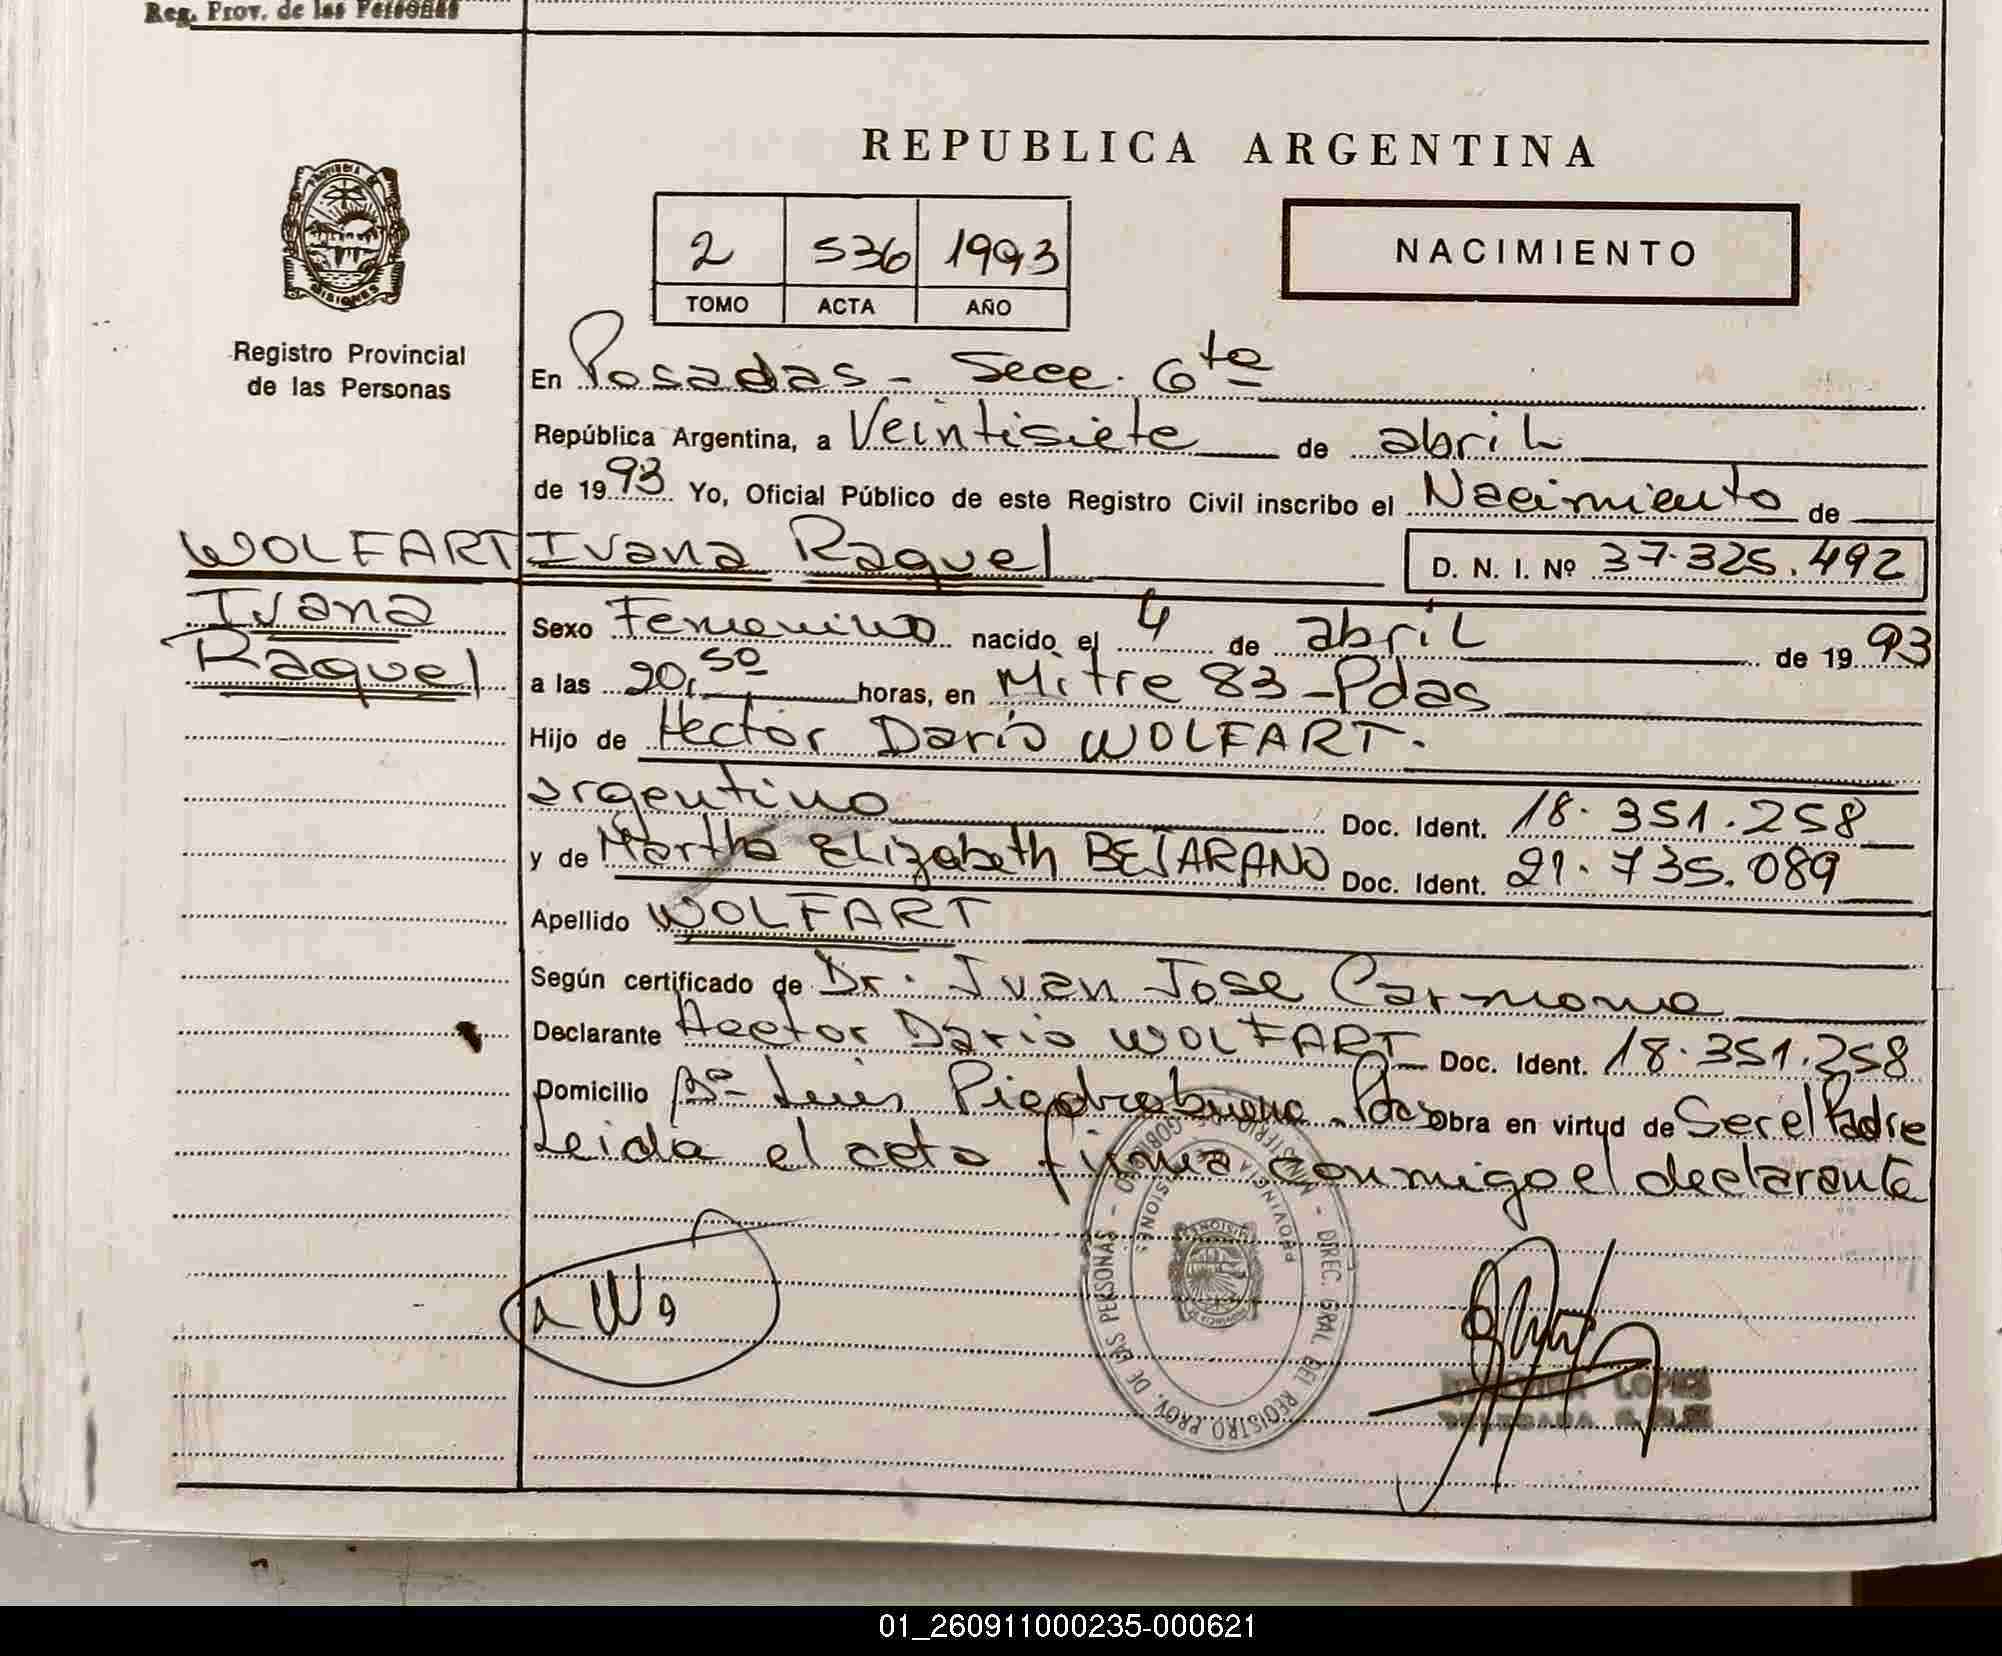 Reg. Prov. de las Personas
REPUBLICA ARGENTINA
2 536 1993
TOMO ACTA AÑO
NACIMIENTO
Registro Provincial
de las Personas
En Posadas - Secc. 6ta
República Argentina, a Veintisiete de abril
de 1993 Yo, Oficial Público de este Registro Civil inscribo el Nacimiento de
WOLFART
Ivana
Raquel
Ivana Raquel D. N. I. Nº 37.325.492
Sexo Femenino nacido el 4 de abril de 1993
a las 20,50 horas, en Mitre 83 - Pdas
Hijo de Hector Darío WOLFART.
argentino Doc. Ident. 18.351.258
y de Martha Elizabeth BEJARANO Doc. Ident. 21.735.089
Apellido WOLFART
Según certificado de Dr. Juan Jose Carmona
Declarante Hector Dario WOLFART Doc. Ident. 18.351.258
Domicilio Bº Luis Piedrabuena - Pdas Obra en virtud de Ser el Padre
Leida el acta firma conmigo el declarante
MINISTERIO DE GOBIERNO - DIREC. GRAL DEL REGISTRO PROV. DE LAS PERSONAS
PROVINCIA MISIONES
LOPEZ
DELEGADA
01_260911000235-000621